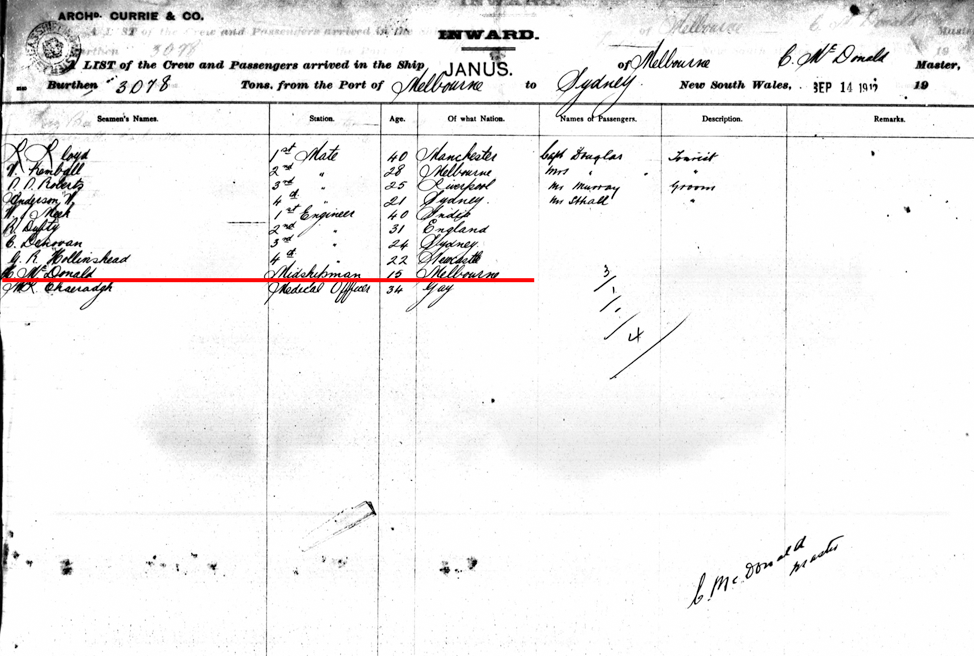 ARCHD. CURRIE & CO.
INWARD.
A LIST of the Crew and Passengers arrived in the Ship JANUS. of Melbourne C. McDonald Master,
Burthen 3078 Tons, from the Port of Melbourne to Sydney New South Wales, SEP 14 191 19
Seamen's Names. Station. Age. Of what Nation. Names of Passengers. Description. Remarks.
R Lloyd 1st Mate 40 Manchester Capt Douglas Tourist
W. Kemball 2nd " 28 Melbourne Mrs " " "
Roberts 3rd " 25 Liverpool Mr Murray Groom
Anderson W. 4 " 21 Sydney. Mr "
W. 1st Engineer 40 India
R. Duffy 2nd " 31 England
C. Donovan 3rd " 24 Sydney.
G. R. Hollinshead 4 " 22 Newcastle
McDonald Midshipman 15 Melbourne
Medical Officer 34
3/
1
1
4
C. McDonald
Master